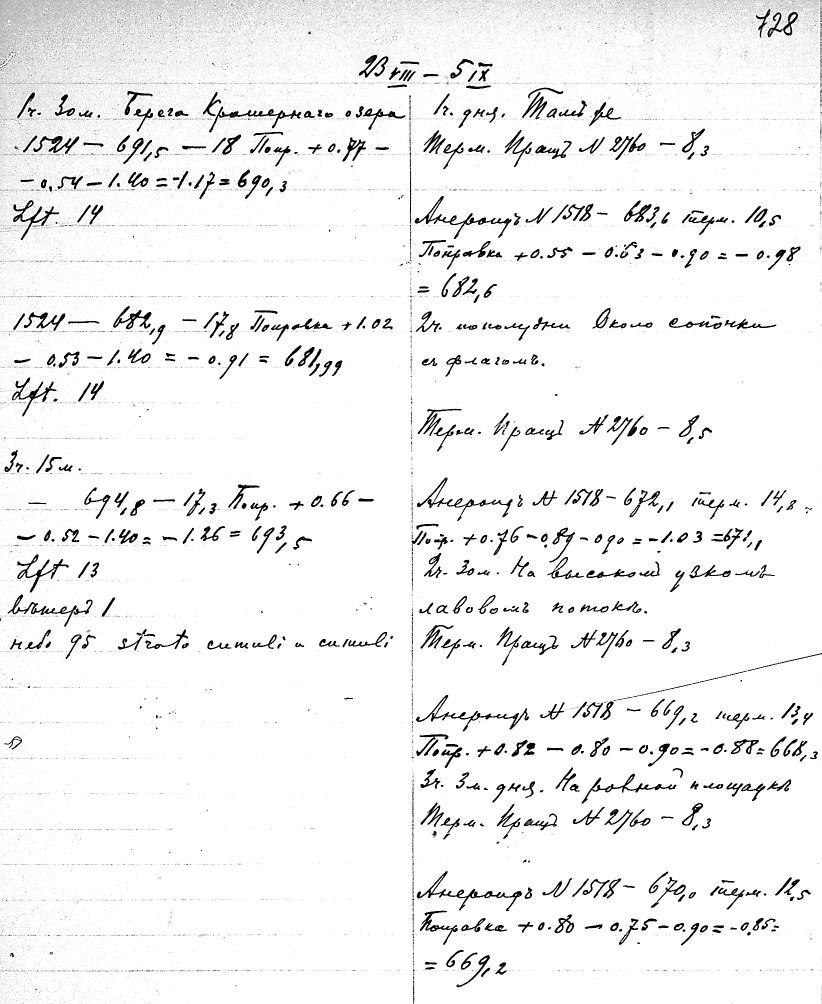 728
23 VIII – 5 IX
1ч. 30м. Берега Кратернаго озера
1524 — 691,5 — 18 Попр. +0.77 –
– 0.54 – 1.40 = -1.17 = 690,3
Lft. 14
1524 — 682,9 — 17,8 Поправка +1.02
– 0.53 – 1.40 = – 0.91 = 681,99
Lft. 14
3ч. 15м.
— 694,8 — 17,3 Попр. +0.66 –
– 0.52 – 1.40 = – 1.26 = 693,5
Lft 13
вѣтеръ 1
небо 95 strato cumuli и cumuli
1ч. дня. Тамъ же
Терм. Пращъ N 2760 – 8,3
Анероидъ N 1518 – 683,6 терм. 10,5
Поправка +0.55 – 0.63 – 0.90 = – 0.98
= 682,6
2ч. пополудни Около сопочки
съ флагомъ.
Терм. Пращъ N 2760 – 8,5
Анероидъ N 1518 – 672,1 терм. 14,8
Попр. +0.76 – 0.89 – 0.90 = – 1.03 = 671,1
2ч. 30м. На высокомъ узкомъ
лавовомъ потокѣ.
Терм. Пращъ N 2760 – 8,3
Анероидъ N 1518 – 669,2 терм. 13,4
Попр. +0.82 – 0.80 – 0.90 = – 0.88 = 668,3
3ч. 3м. дня. На ровной площадкѣ
Терм. Пращъ N 2760 – 8,3
Анероидъ N 1518 – 670,0 терм. 12,5
Поправка +0.80 – 0.75 – 0.90 = – 0.85 =
= 669,2